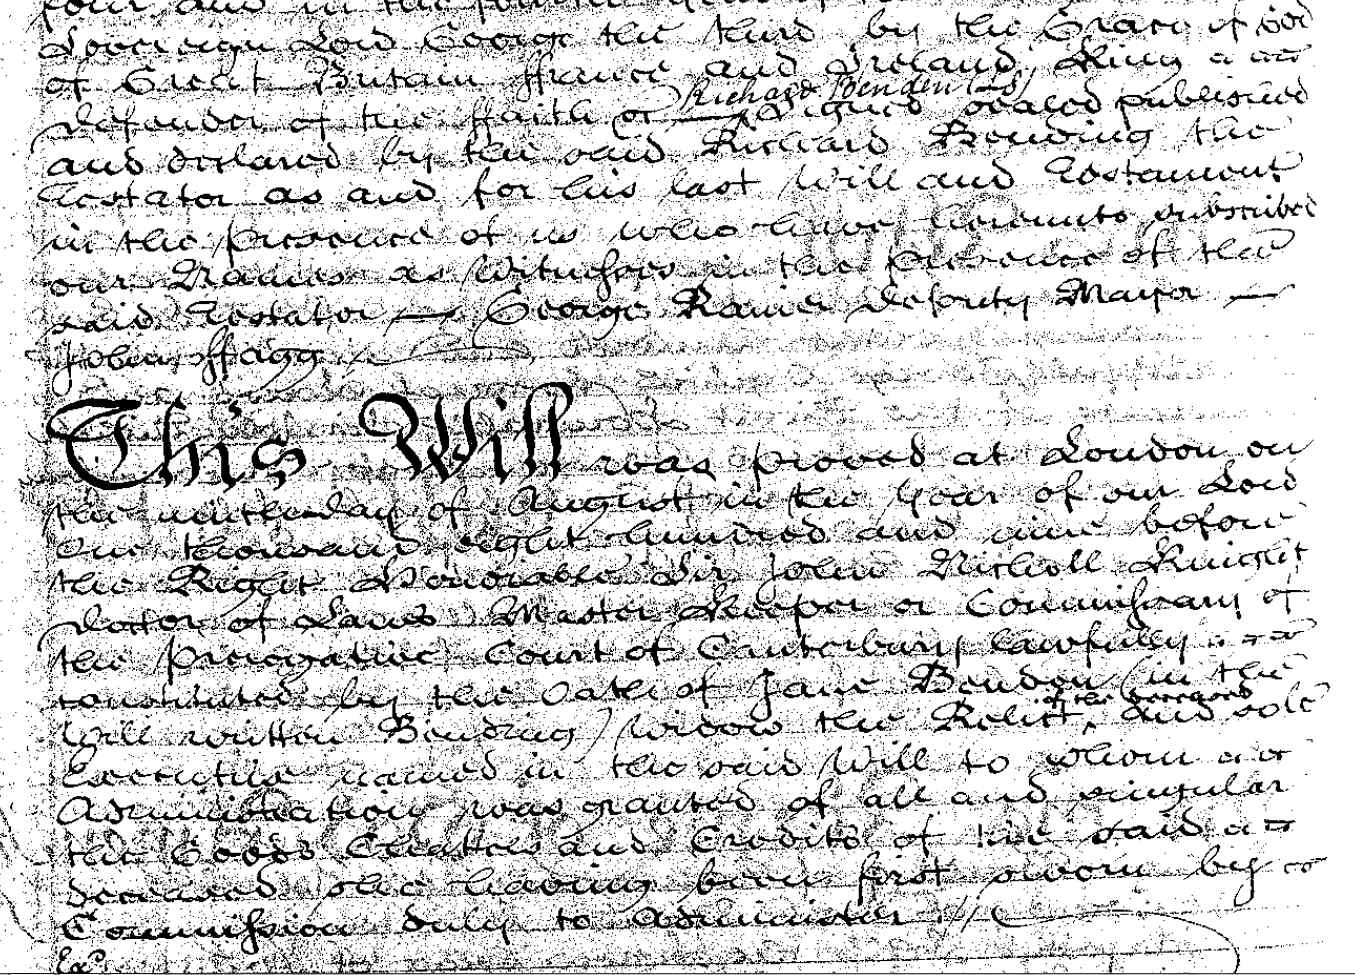 four and in the fourth year of
Sovereign Lord George the third by the Grace of God
of Great Britain ffrance and Ireland King
Richard Benden (LS)
Defender of the ffaith &c — Signed sealed published
and declared by the said Richard Bending the
Testator as and for his last Will and Testament
in the presence of us who have hereunto subscribed
our Names as Witnesses in the presence of the
said Testator — George Rainer Deputy Mayor —
John ffagg
This Will was proved at London on
the day of August in the year of our Lord
One thousand eight hundred and nine before
the Right Honorable Sir John Nicholl Knight
Doctor of Laws Master Keeper or Commissary of
the Prerogative Court of Canterbury lawfully
constituted by the Oath of Jane Benden (in the
of the deceased
Will written Bending) Widow the Relict, and sole
Executrix named in the said Will to whom
Administration was granted of all and singular
the Goods Chattels and Credits of the said
deceased she having been first sworn by
Commission duly to Administer //
Exd.